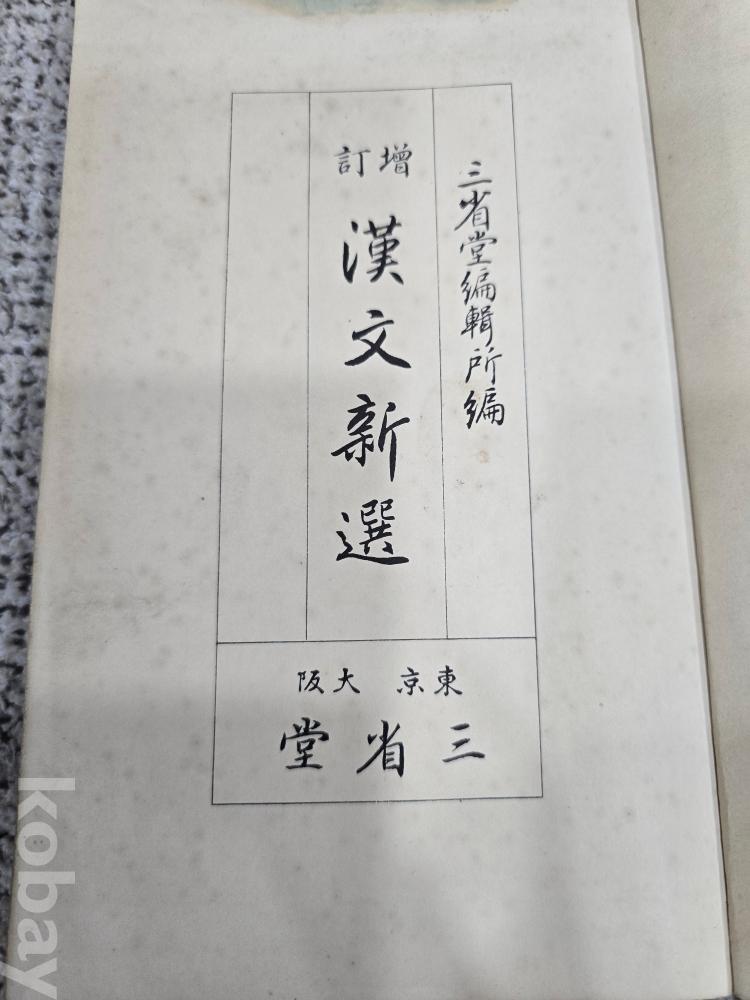 三省堂編輯所編
增訂
漢文新選
東京 大阪
三省堂
kobay